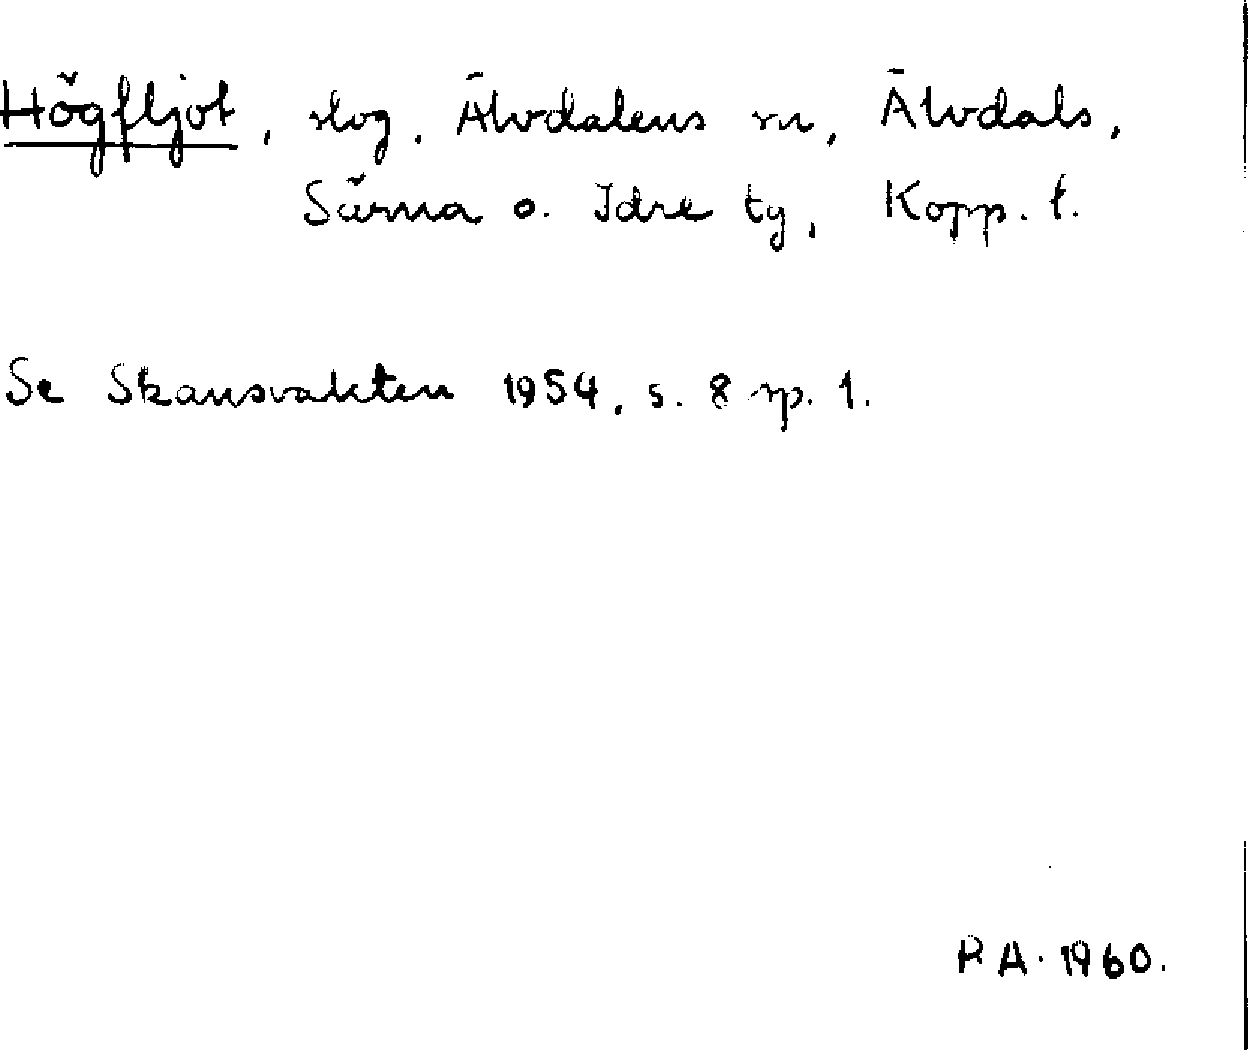 Högfljot, slog, Älvdalens sn, Älvdals,
Särna o. Idre tg, Kopp. l.
Se Skansvakten 1954, s. 8 sp. 1.
R A. 1960.